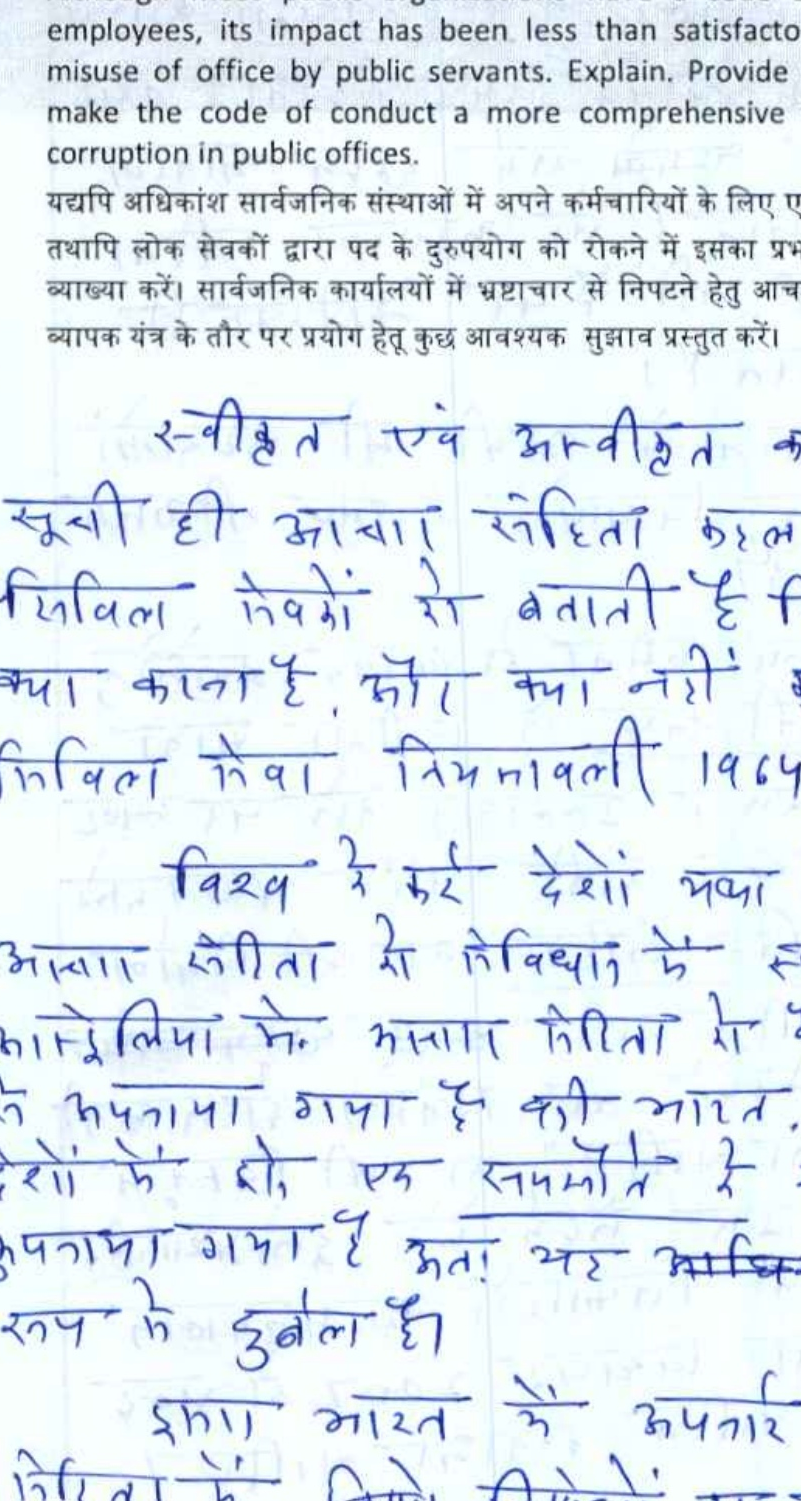 employees, its impact has been less than satisfacto
misuse of office by public servants. Explain. Provide
make the code of conduct a more comprehensive
corruption in public offices.
यद्यपि अधिकांश सार्वजनिक संस्थाओं में अपने कर्मचारियों के लिए ए
तथापि लोक सेवकों द्वारा पद के दुरुपयोग को रोकने में इसका प्रभ
व्याख्या करें। सार्वजनिक कार्यालयों में भ्रष्टाचार से निपटने हेतु आच
व्यापक यंत्र के तौर पर प्रयोग हेतू कुछ आवश्यक सुझाव प्रस्तुत करें।
स्वीकृत एवं अस्वीकृत क
सूची ही आचार संहिता कहल
सिविल सेवकों को बताती है
क्या करना है, और क्या नहीं
सिविल सेवा नियमावली 1964
विश्व के कई देशों यथा
आचार संहिता को संविधान के
आस्ट्रेलिया में आचार संहिता को
से अपनाया गया है वही भारत
देशों में इसे एक समझौते के
अपनाया गया है अतः यह
रूप से दुर्बल है।
भारत में अपनाई
संहिता में